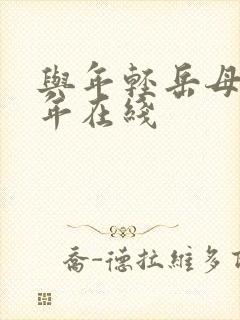 與年輕岳母
年在綫
喬-德拉維多